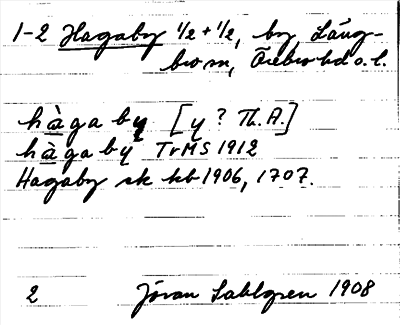 1-2 Hagaby 1/2 + 1/2, by Läng-
bro sn, Örebro hd o. l.
hàgaby [y ? Th. A.]
hàgaby TvMS 1912
Hagaby sk kb 1906, 1707.
2 Jöran Sahlgren 1908